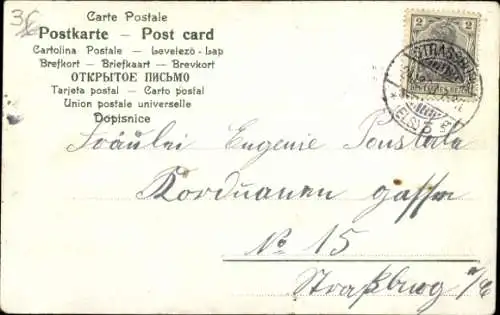 Carte Postale
Postkarte — Post card
Cartolina Postale — Levelező-Lap
Brefkort — Briefkaart — Brevkort
ОТКРЫТОЕ ПИСЬМО
Tarjeta postal — Carto postal
Union postale universelle
Dopisnice
2 2
STRASSBURG
(ELS)
Fräulei Eugenie
Korduanen gasse
No 15
Straßburg i/E